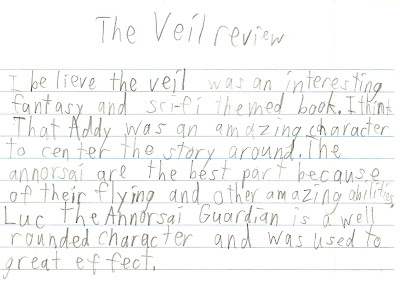 The Veil review
I believe the veil was an interesting
fantasy and sci-fi themed book. I think
That Addy was an amazing character
to center the story around. The
annorsai are the best part because
of their flying and other amazing abilities.
Luc The Annorsai Guardian is a well
rounded character and was used to
great effect.